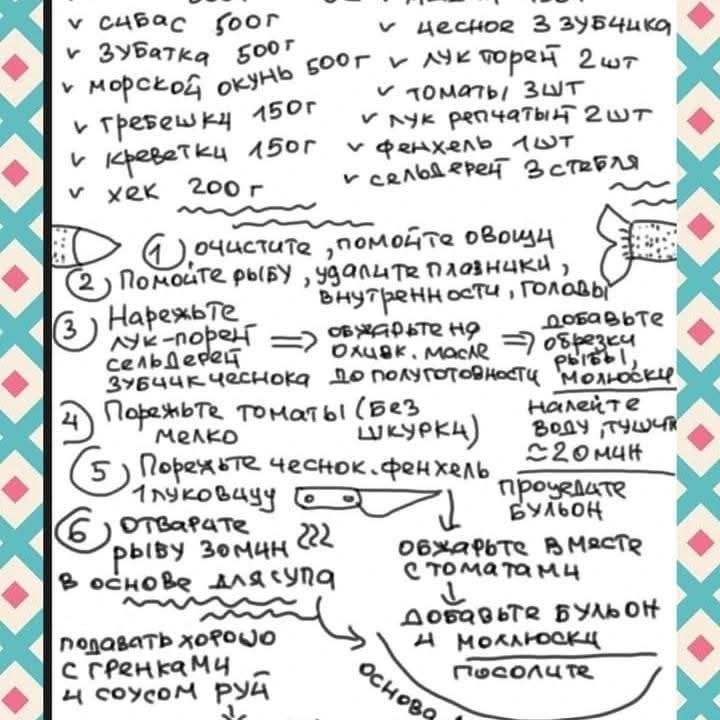 ✓ сибас 500г
✓ зубатка 500г
✓ морской окунь 500г
✓ гребешки 150г
✓ креветки 150г
✓ хек 200г
✓ чесное 3 зубчика
✓ лук порей 2шт
✓ томаты 3шт
✓ лук репчатый 2шт
✓ фенхель 1шт
✓ сельдерей 3стебля
1 очистите, помойте овощи
2 помойте рыбу, удалите плавники,
внутренности, головы
3 Нарежьте
лук-порей
сельдерей
зубчик чеснока
⇒ обжарьте на
оливк. масле
до полуготовности
⇒ добавьте
обрезки
рыбы,
моллюски
налейте
воду, тушите
≈20мин
процедите
бульон
4 Порежьте томаты (без
мелко шкурки)
5 Порежьте чеснок. фенхель
1 луковицу
↓
обжарьте вместе
с томатами
↓
добавьте бульон
и моллюски
посолите
6 отварите
рыбу 30мин
в основе для супа
подавать хорошо
с гренками
и соусом руй
основа